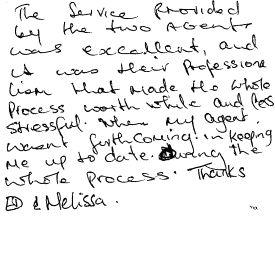 The Service Provided
by the two Agent,
was excellent, and
it was their professiona
lism that made the whole
Process worth while and less
stressful. when my agent.
wasnt forthcoming in keeping
me up to date. During the
whole process. Thanks
& Melissa.